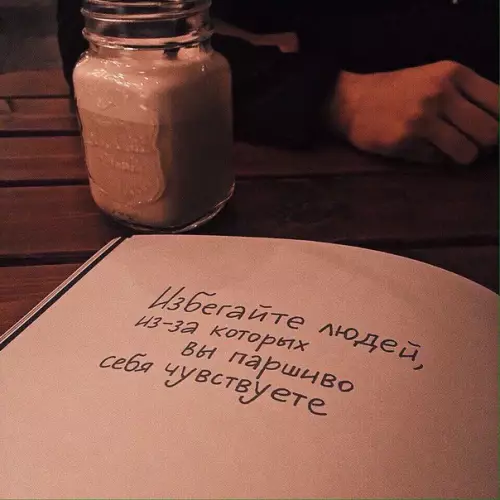 Избегайте людей,
из-за которых
вы паршиво
себя чувствуете